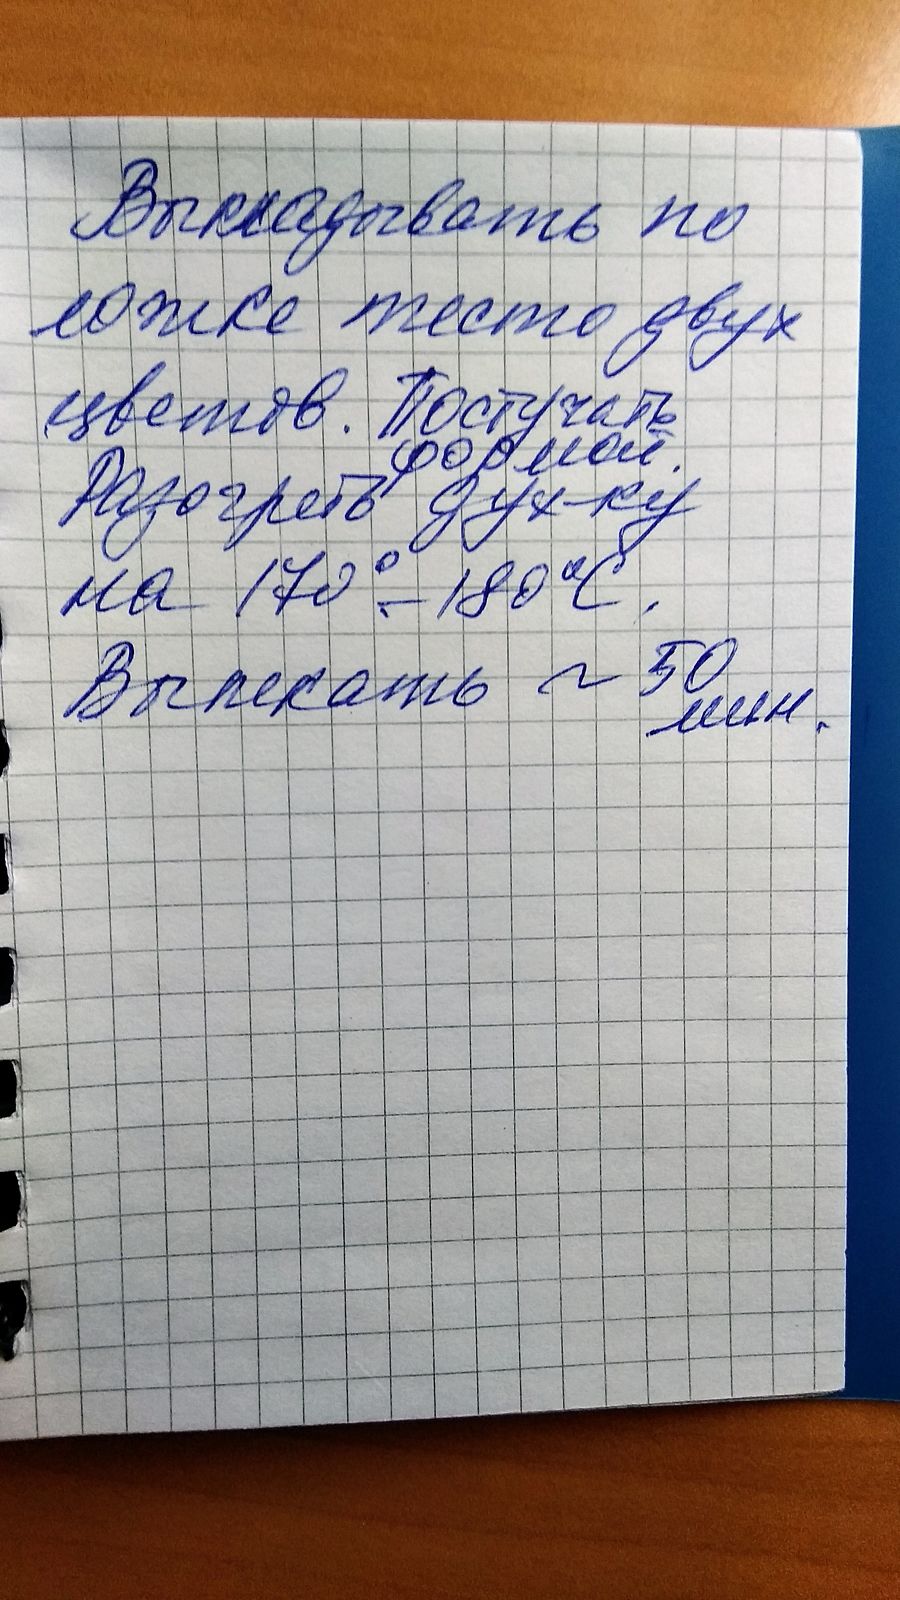 Выкладывать по
ложке тесто двух
цветов. Постучать
формой.
Разогреть дух-ку
на 170° - 180°С.
Выпекать ~ 50
мин.